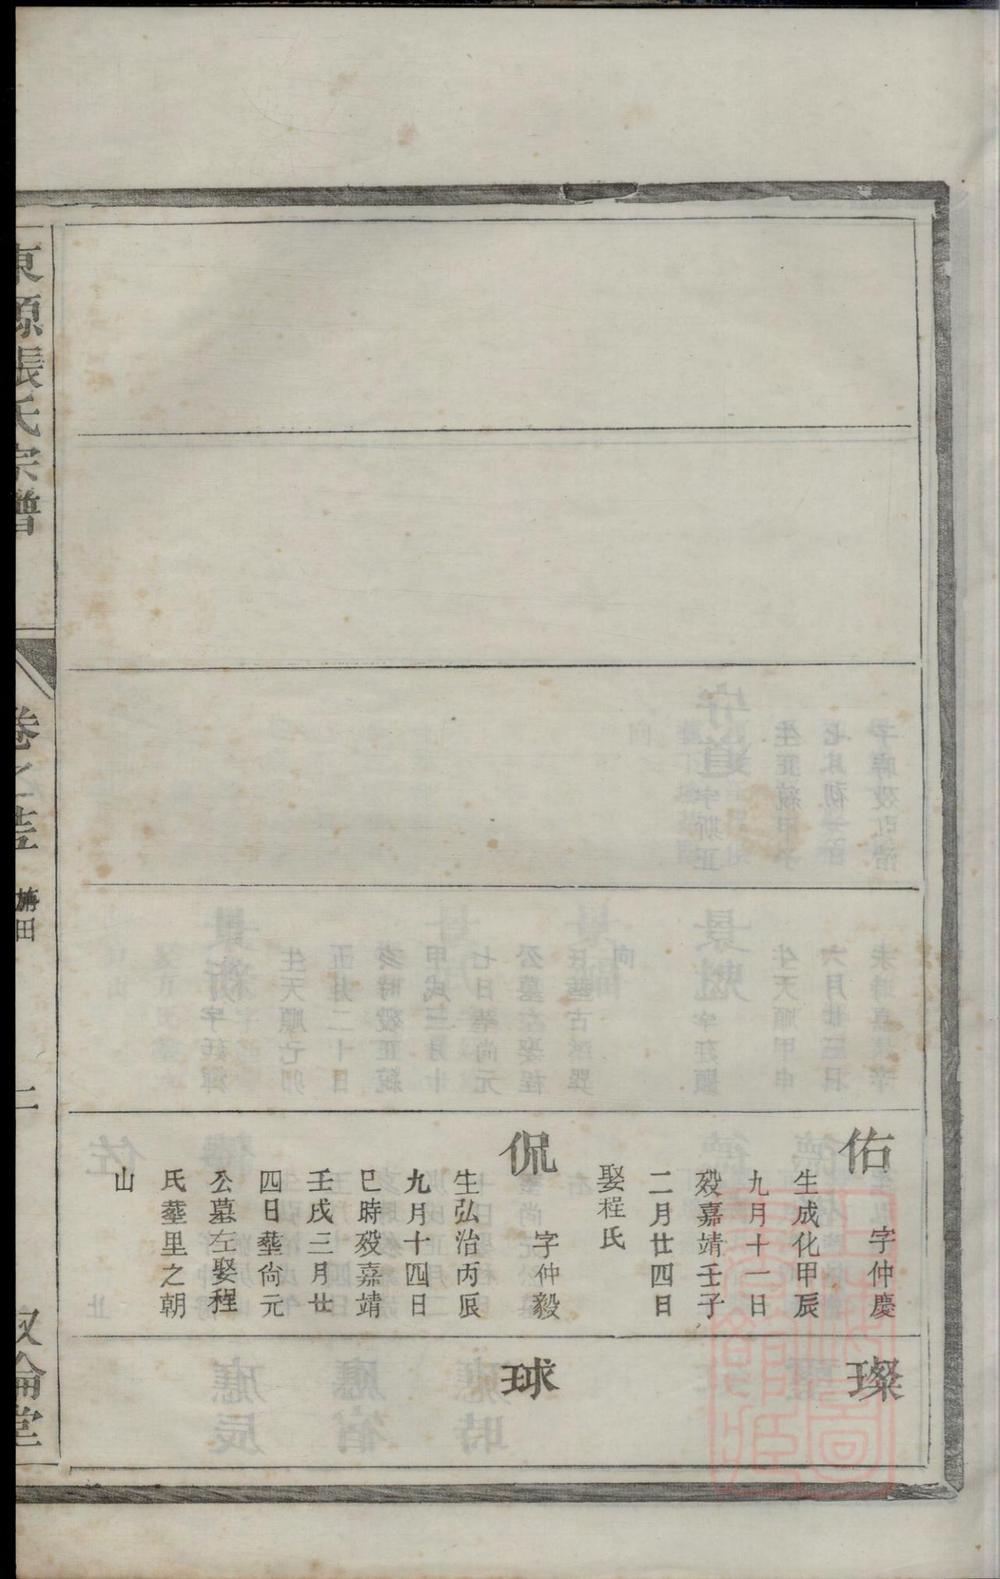 佑
字仲慶
生成化甲辰
九月十一日
歿嘉靖壬子
二月廿四日
娶程氏
侃
字仲毅
生弘治丙辰
九月十四日
巳時歿嘉靖
壬戌三月廿
四日塟尙元
公墓左娶程
氏塟里之朝
山
璨
球
東源張氏宗譜
卷之壹
田
二
敘倫堂